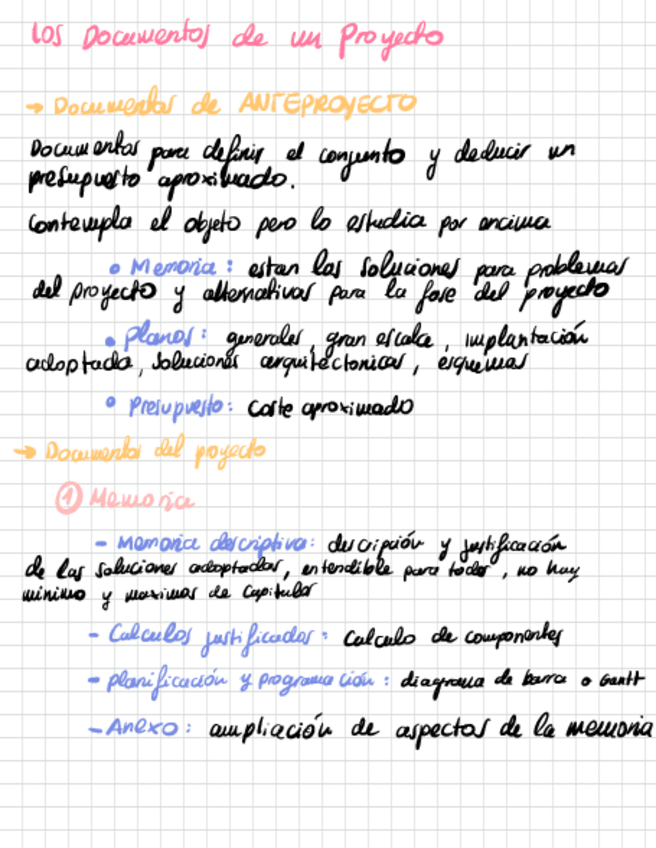 Los Documentos de un Proyecto
→ Documentos de ANTEPROYECTO
Documentos para definir el conjunto y deducir un
presupuesto aproximado.
Contempla el objeto pero lo estudia por encima
• Memoria: estan las soluciones para problemas
del proyecto y alternativas para la fase del proyecto
• Planos: generales, gran escala, implantación
adoptada, soluciones arquitectonicas, esquemas
• Presupuesto: Coste aproximado
→ Documentos del proyecto
① Memoria
- Memoria descriptiva: descripción y justificación
de las soluciones adoptadas, entendible para todos, no hay
minimo y maximos de capitulos
- Calculos justificados: Calculo de componentes
- planificación y programación: diagrama de barra o Gantt
- Anexo: ampliación de aspectos de la memoria